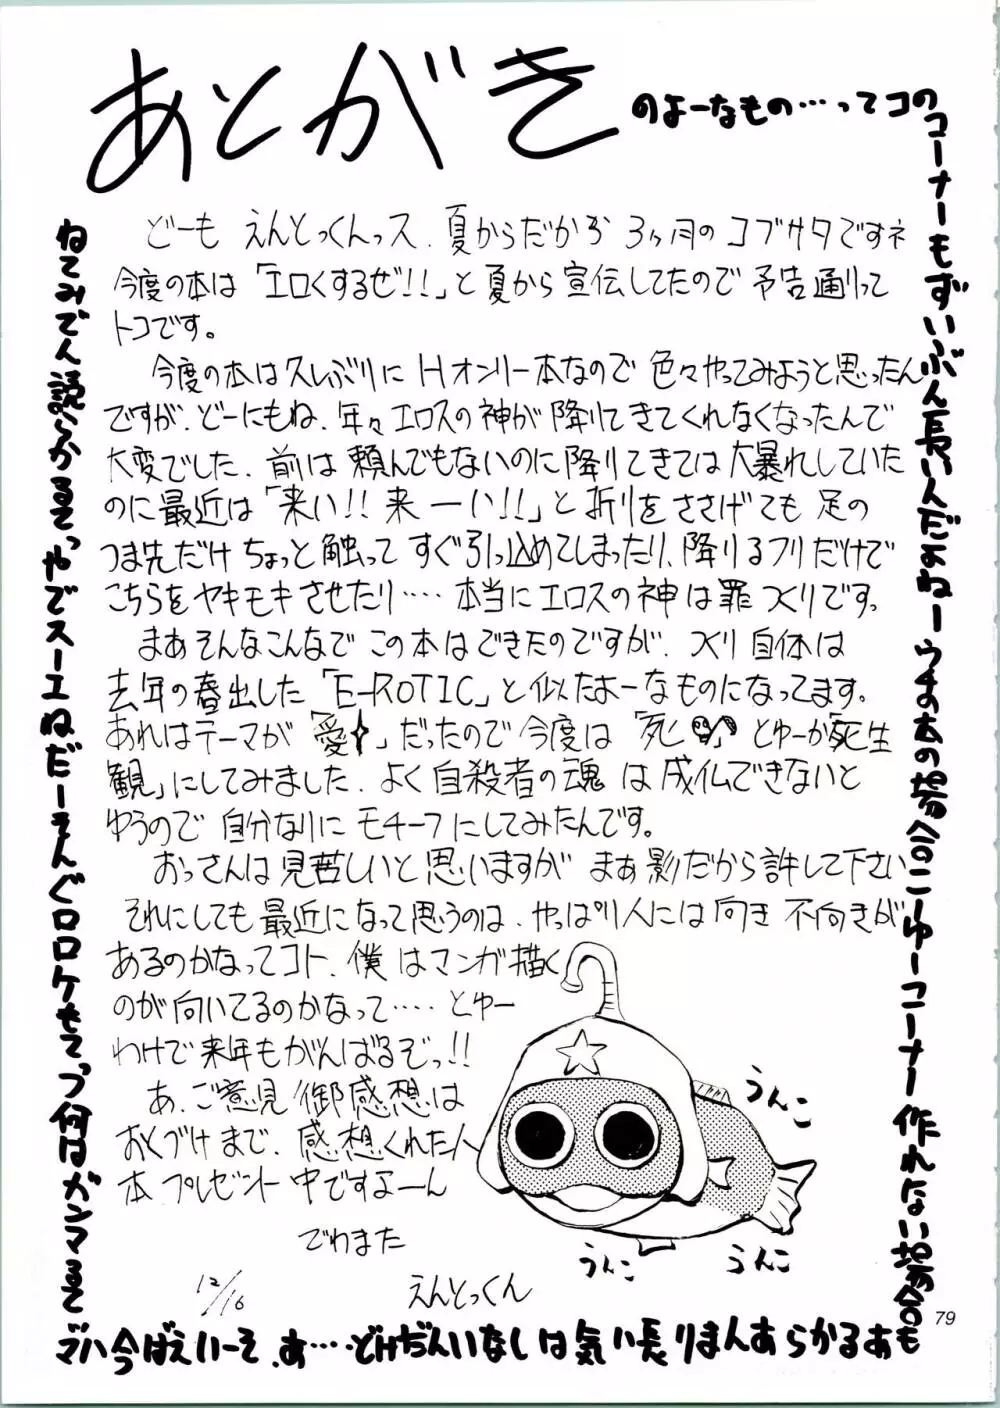 あとがき
のよーなもの…ってコの
コーナーもずいぶん長いんだよねーウチの本の場合こーゆーコーナー作れない場合
もあるからあんまり長い気はしないんだけど…。あ、そーいえば今ハマ
ってるマンガは何つってもケロロぐんそーだね。エースでやってるから読んでみてね
どーも えんとっくんっス、夏からだから 3ヶ月のゴブサタですネ
今度の本は「エロくするぜ!!」と夏から宣伝してたので 予告通りって
トコです。
今度の本は久しぶりにHオンリー本なので 色々やってみようと思ったん
ですが、どーにもね、年々エロスの神が降りてきてくれなくなったんで
大変でした、前は頼んでもないのに降りてきては大暴れしていた
のに最近は「来い!! 来ーい!!」と祈りをささげても 足の
つま先だけちょっと触ってすぐ引っ込めてしまったり、降りるフリだけで
こちらをヤキモキさせたり‥‥ 本当にエロスの神は罪づくりですっ
まあそんなこんなで この本はできたのですが、つくり自体は
去年の春出した「E-ROTIC」と似たよーなものになってます。
あれはテーマが「愛」だったので今度は「死」とゆーか「死生
観」にしてみました、よく自殺者の魂は成仏できないと
ゆうので 自分なりにモチーフにしてみたんです。
おっさんは見苦しいと思いますが まあ影だから許して下さい
それにしても最近になって思うのは、やっぱり人には向き不向きが
あるのかなってコト、僕はマンガ描く
のが向いてるのかなって‥‥とゆー
わけで来年もがんばるぞっ!!
あ、ご意見御感想は
おくづけまで、感想くれた人
本プレゼント中ですよーん
でわまた
12/16
えんとっくん
うんこ
うんこ
うんこ
79